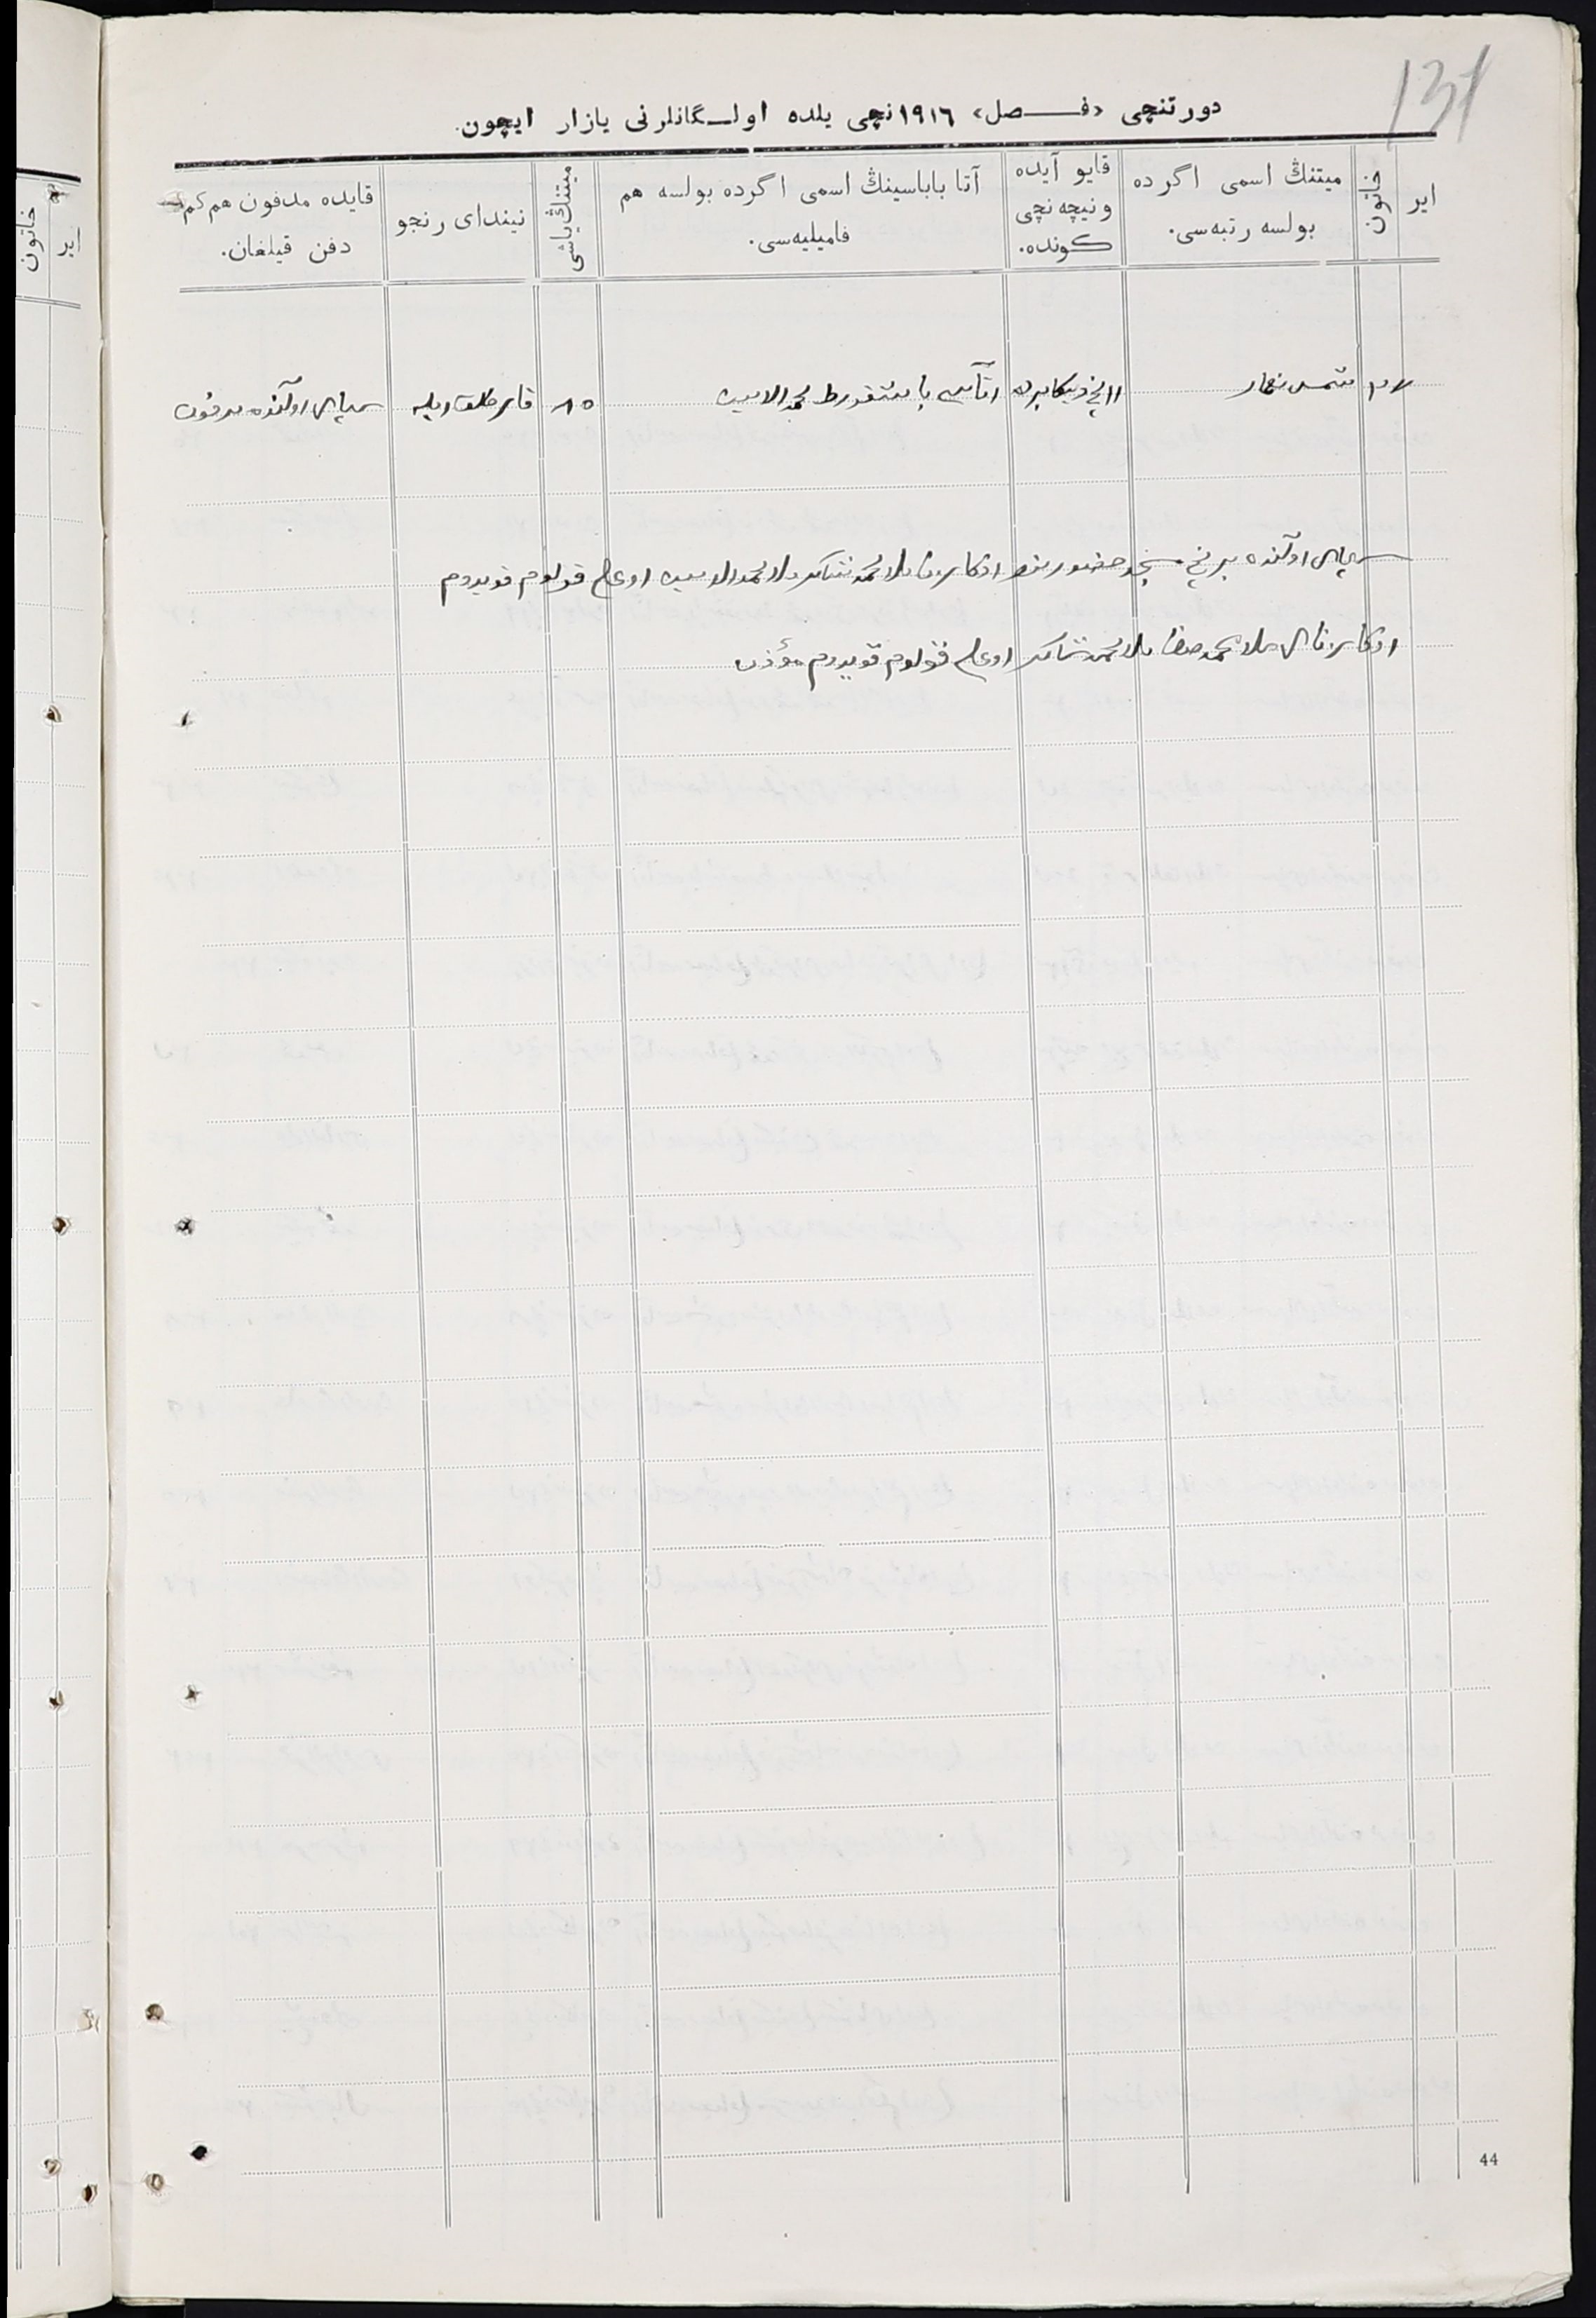 131
دورتنچی «فـــصل» ١٩١٦نچی یلده اولـگانلرنی یازار ایچون.
ایر
خاتون
میتنڭ اسمی اگرده بولسه رتبه‌سی.
قایو آیده ونیچه‌نچی كونده.
آتا باباسینڭ اسمی اگرده بولسه هم فامیلیه‌سی.
میتنڭ یاشی
نیندای رنجو
قایده مدفون هم‌كم دفن قیلغان.
شمس نهار
١١نچی دیكابرده
اتاسی باشقورط محمد الامین
٨٥
اولگنده مدفون
اولگنده برنچی مسجد حضورینده ملا محمد شاكر ملا محمد الامین اوغلی قولوم قویدوم
ملا محمد صفا ملا محمد شاكر اوغلی قولوم قویدوم مؤذن
44
خاتون
ایر